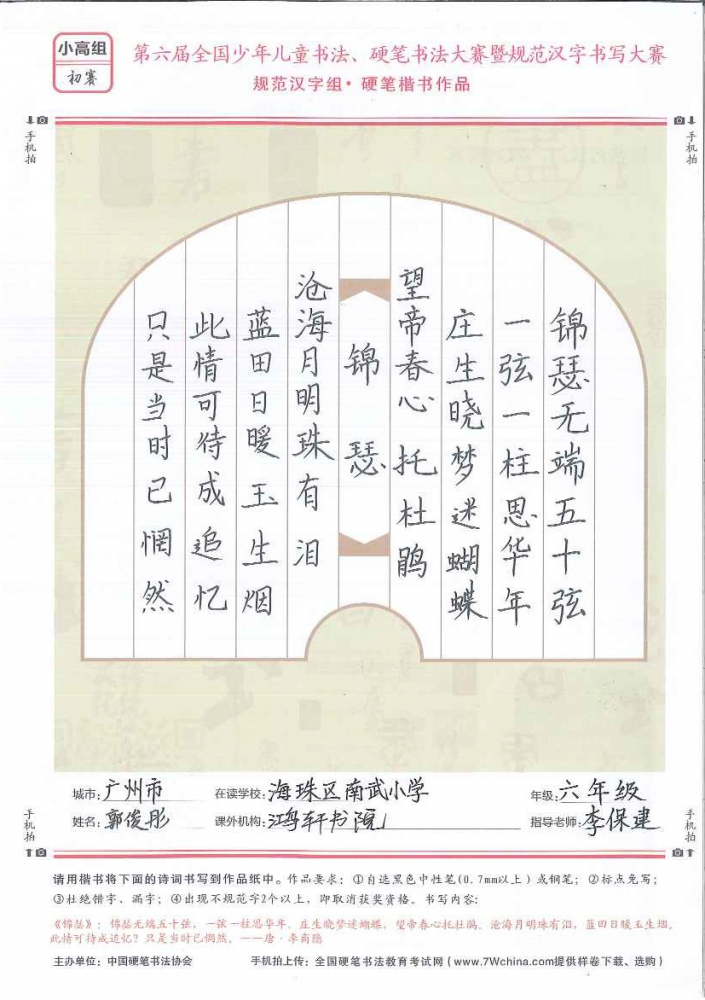 小高组
初赛
第六届全国少年儿童书法、硬笔书法大赛暨规范汉字书写大赛
规范汉字组·硬笔楷书作品
手机拍
手机拍
锦瑟无端五十弦
一弦一柱思华年
庄生晓梦迷蝴蝶
望帝春心托杜鹃
锦瑟
沧海月明珠有泪
蓝田日暖玉生烟
此情可待成追忆
只是当时已惘然
城市:广州市 在读学校:海珠区南武小学 年级:六年级
姓名:郭俊彤 课外机构:鸿轩书院 指导老师:李保建
手机拍
手机拍
请用楷书将下面的诗词书写到作品纸中。作品要求:①自选黑色中性笔(0.7mm以上)或钢笔;②标点免写;
③杜绝错字、漏字;④出现不规范字2个以上,即取消获奖资格。书写内容:
《锦瑟》:锦瑟无端五十弦,一弦一柱思华年。庄生晓梦迷蝴蝶,望帝春心托杜鹃。沧海月明珠有泪,蓝田日暖玉生烟。
此情可待成追忆?只是当时已惘然。——唐·李商隐
主办单位:中国硬笔书法协会 手机拍上传:全国硬笔书法教育考试网(www.7Wchina.com提供样卷下载、选购)